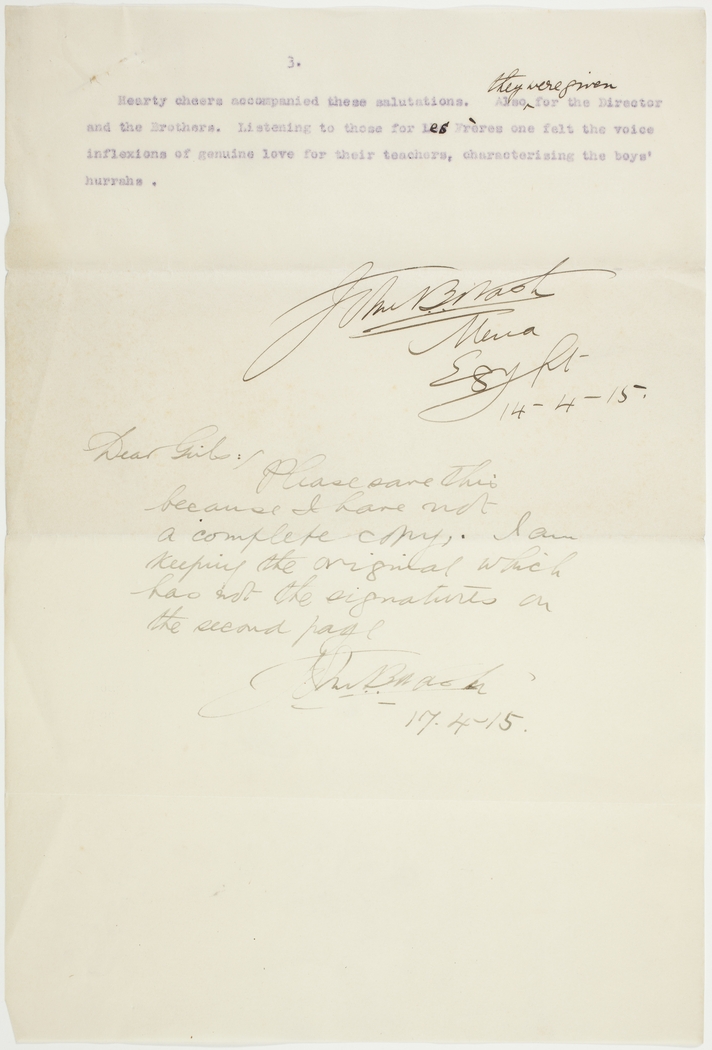 3.
they were given
Hearty cheers accompanied these salutations. Also ^ for the Director
and the Brothers. Listening to those for Les Frères one felt the voice
inflexions of genuine love for their teachers, characterising the boys'
hurrahs .
John B. Nash
Mena
Egypt
14-4-15.
Dear Girls:/
Please save this
because I have not
a complete copy. I am
keeping the original which
has not the signatures on
the second page
John B. Nash
17.4-15.